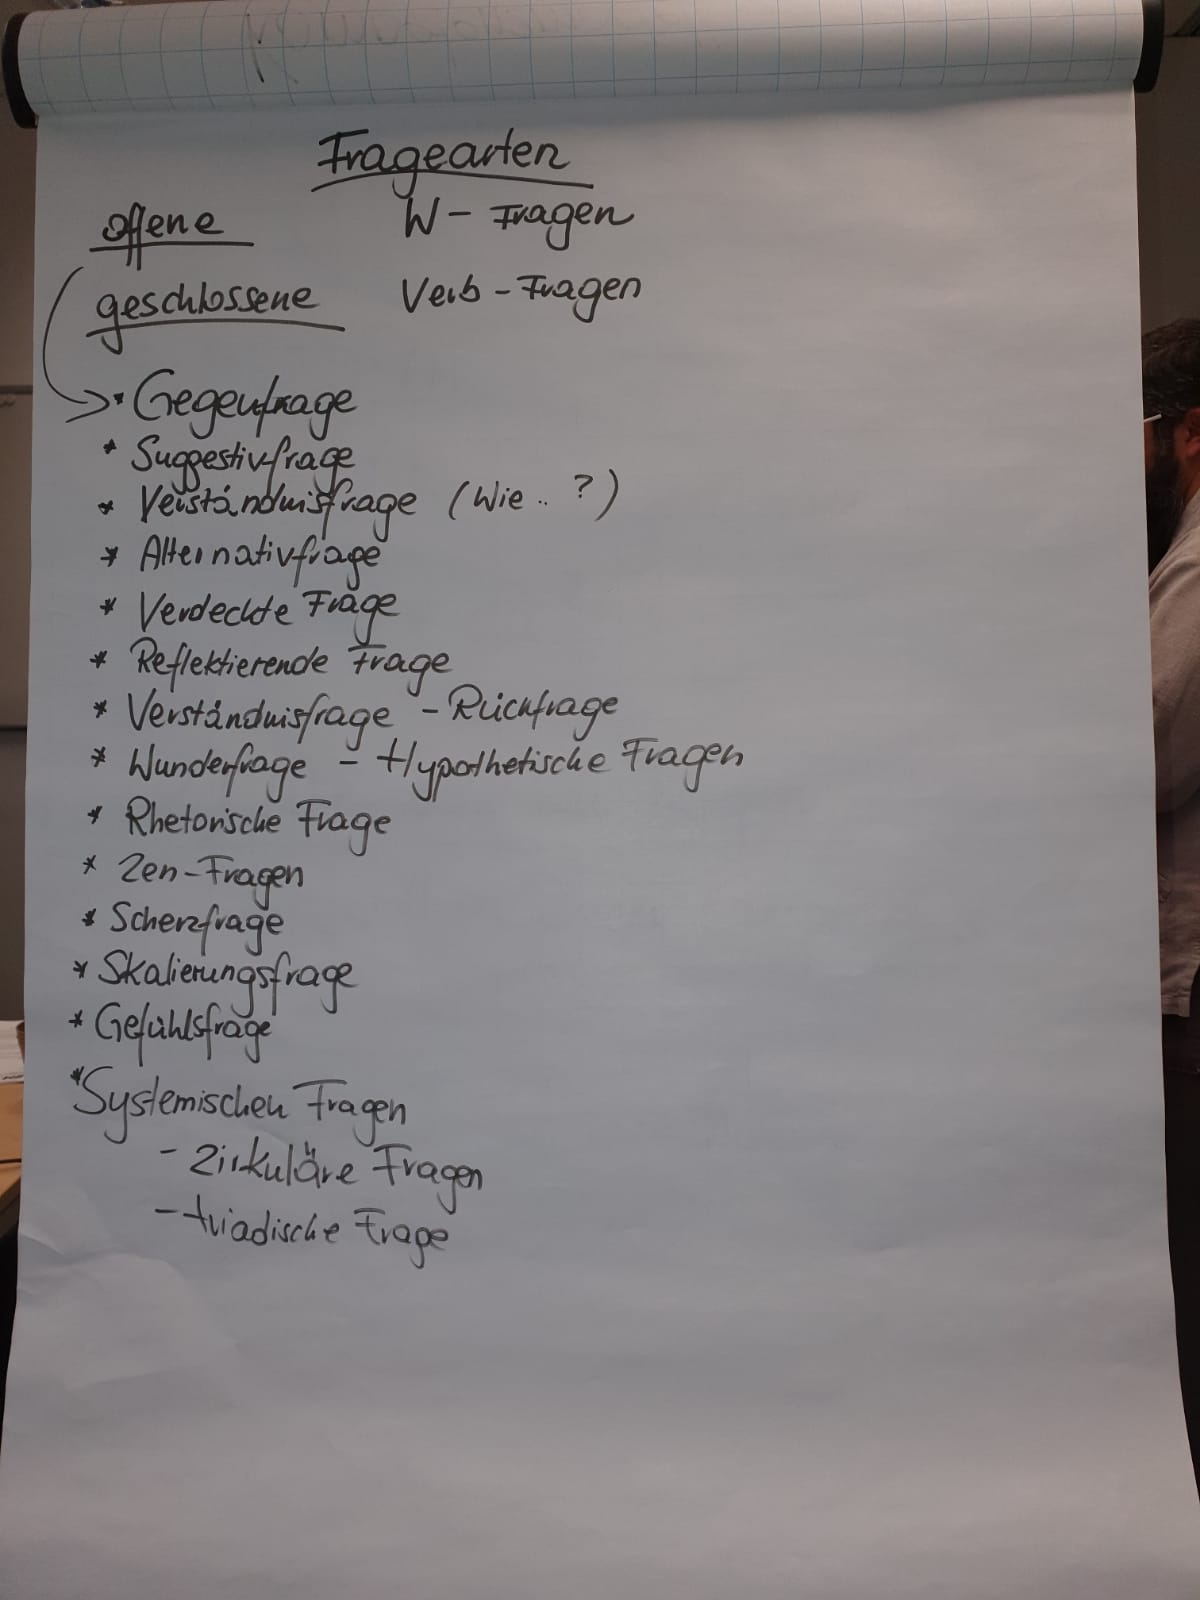 Fragearten
offene W - Fragen
geschlossene Verb - Fragen
* Gegenfrage
* Suggestivfrage
* Verständnisfrage (Wie .. ?)
* Alternativfrage
* Verdeckte Frage
* Reflektierende Frage
* Verständnisfrage - Rückfrage
* Wunderfrage - Hypothetische Fragen
* Rhetorische Frage
* Zen-Fragen
* Scherzfrage
* Skalierungsfrage
* Gefühlsfrage
* Systemischen Fragen
- Zirkuläre Fragen
- triadische Frage